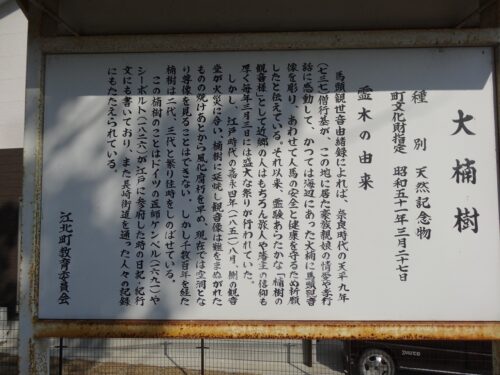 大楠樹
種別 天然記念物
町文化財指定 昭和五十一年三月二十七日
霊木の由来
馬頭観世音由緒録によれば、奈良時代の天平九年
(七三七)僧行基が、この地に居た豪族親娘の情愛や孝行
話に感動して、かつては海辺にあった大楠に馬頭観音
像を彫り、あわせて人馬の安全と健康を守るため祈願
したと伝えている。それ以来、霊験あらたかな「楠樹の
観音様」として近郷の人はもちろん旅人や藩主の信仰も
厚く毎年三月三日には盛大な祭りが行われていた。
しかし、江戸時代の嘉永四年(一八五一)八月、樹の観音
堂が火災に会い、楠樹に延焼し観音像は難をまぬがれた
ものの焼けあとから風化腐朽を早め、現在では空洞とな
り尊像を見ることはできない。しかし千数百年を経た
楠樹は二代、三代と繁り往時をしのばせている。
この楠樹のことはドイツの医師ケンペル(一六九一)や
シーボルト(一八二六)が江戸に参府した時の日記・紀行
文にも書いており、また長崎街道を通った人々の記録
にもたたえられている。
江北町教育委員会